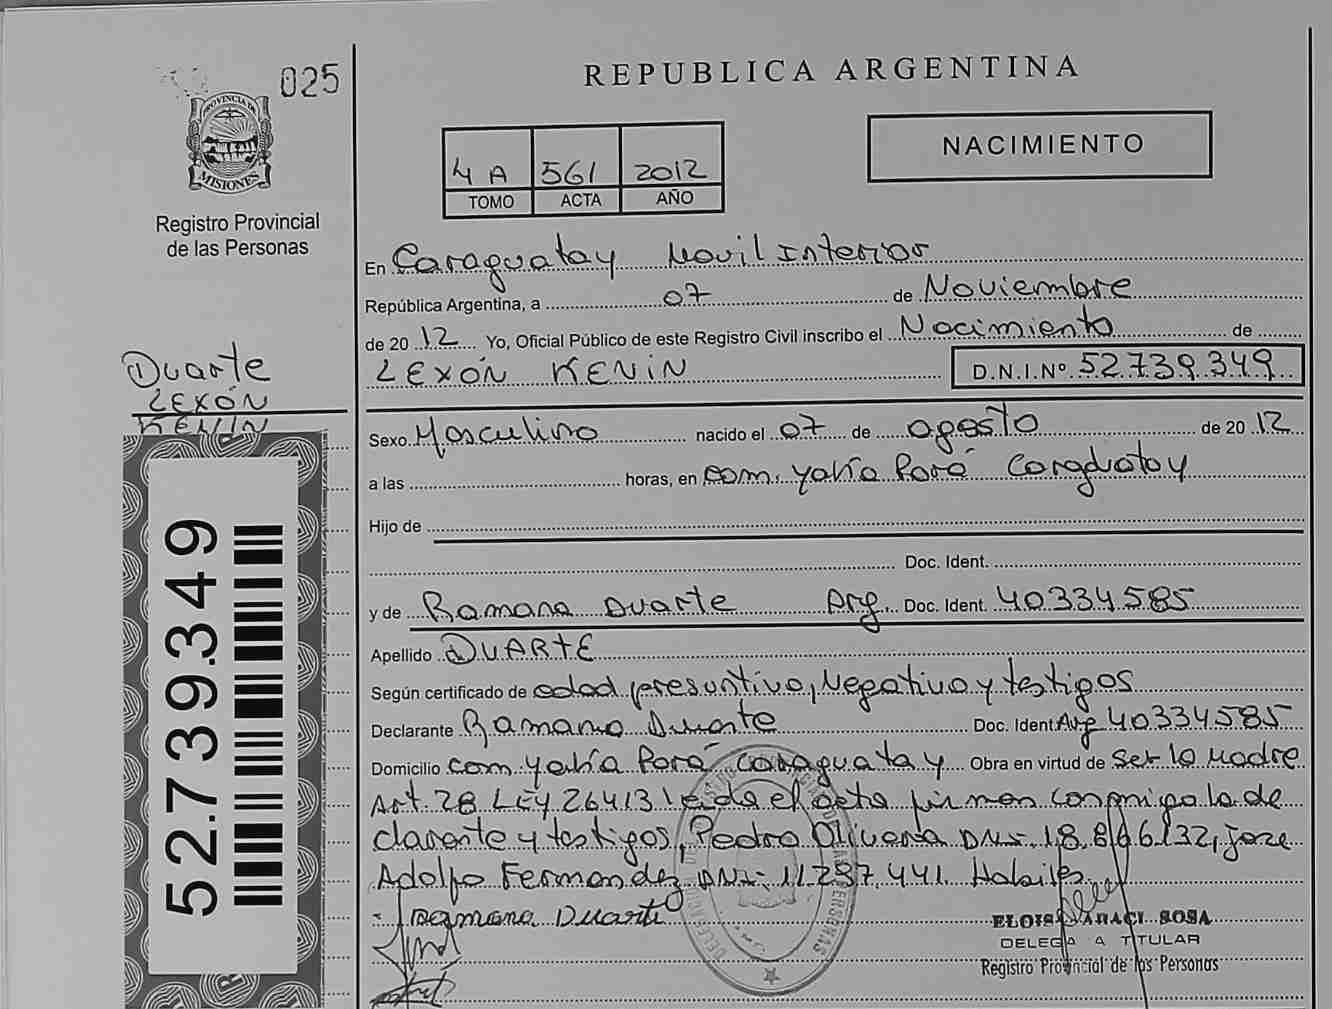 025
PROVINCIA DE
MISIONES
Registro Provincial
de las Personas
REPUBLICA ARGENTINA
NACIMIENTO
4 A 561 2012
TOMO ACTA AÑO
En Caraguatay Movil Interior
República Argentina, a 07 de Noviembre
de 20 12 Yo, Oficial Público de este Registro Civil inscribo el Nacimiento de
LEXÓN KENIN D.N.I.Nº 52.739.349
Duarte
LEXÓN
KENIN
Sexo Masculino nacido el 07 de agosto de 20 12
a las horas, en com. yabía Pará Caraguatay
Hijo de
Doc. Ident.
y de Ramana Duarte Arg. Doc. Ident. 40334585
Apellido DUARTE
Según certificado de edad presuntiva, Negativo y testigos
Declarante Ramana Duarte Doc. Ident Arg 40334585
Domicilio com. yabía Pará Caraguatay Obra en virtud de ser la madre
Art. 28 LEY 26413 leida el acta firman conmigo la de
clarante y testigos, Pedro Olivera DNI- 18.866132, Jose
Adolfo Fernandez DNI- 11.297.441. Habiles
Ramana Duarte
52.739.349
ELOISA ARACI SOSA
DELEGADA TITULAR
Registro Provincial de las Personas